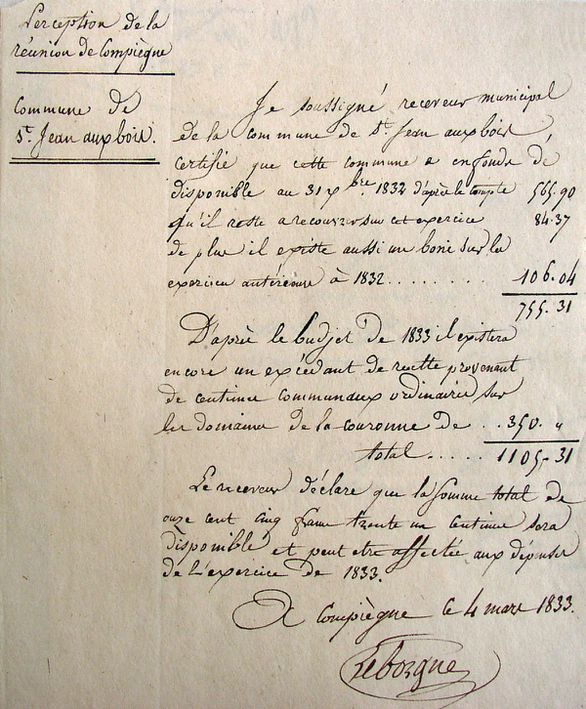 Perception de la
réunion de Compiègne
Commune de
St. Jean aux bois.
Je soussigné receveur municipal
de la commune de St. Jean aux bois,
certifie que cette commune a en fonds de
disponible au 31 Xbre 1832 d'après le compte 565.90
qu'il reste a recouvrer sur cet exercice 84.37
de plus il existe aussi un boni sur les
exercices antérieurs à 1832 ......... 106.04
755.31
D'après le budjet de 1833 il existera
encore un excédant de recette provenant
de centimes communaux ordinaires sur
les domaines de la couronne de .. 350. "
total ..... 1105.31
Le receveur déclare que la somme total de
onze cent cinq francs trente un centimes sera
disponible et peut etre affectée aux dépenses
de L'exercice de 1833.
A Compiègne le 4 mars 1833.
Leborgne